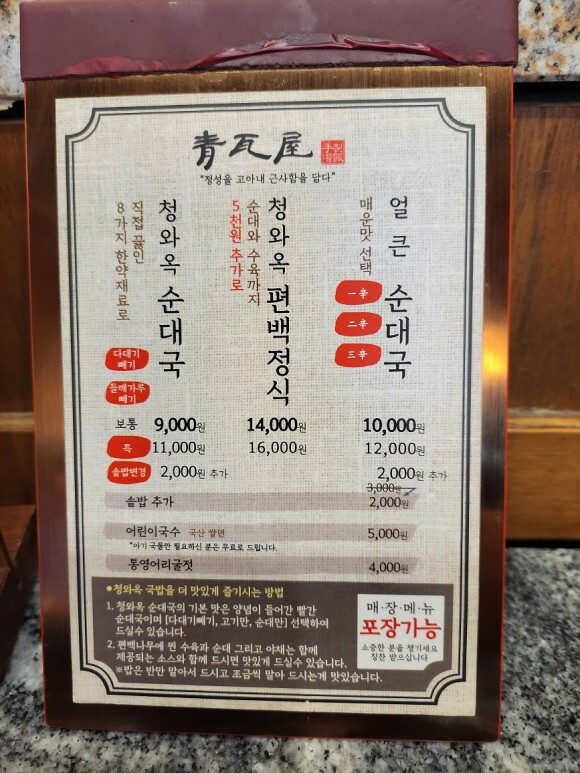 靑瓦屋
"정성을 고아내 근사함을 담다"
얼큰 순대국
매운맛 선택
一辛
二辛
三辛
청와옥 편백정식
순대와 수육까지
5천원 추가로
청와옥 순대국
직접 끓인
8가지 한약재료로
다대기
빼기
들깨가루
빼기
보통 9,000원 14,000원 10,000원
특 11,000원 16,000원 12,000원
솥밥변경 2,000원 추가 2,000원 추가
솥밥 추가 3,000원 2,000원
어린이국수 국산 쌀면 5,000원
*아기 국물만 필요하신 분은 무료로 드립니다.
통영어리굴젓 4,000원
●청와옥 국밥을 더 맛있게 즐기시는 방법
1. 청와옥 순대국의 기본 맛은 양념이 들어간 빨간
순대국이며 [다대기빼기, 고기만, 순대만] 선택하여
드실수 있습니다.
2. 편백나무에 찐 수육과 순대 그리고 야채는 함께
제공되는 소스와 함께 드시면 맛있게 드실수 있습니다.
※밥은 반만 말아서 드시고 조금씩 말아 드시는게 맛있습니다.
매·장·메·뉴
포장가능
소중한 분을 챙기세요
칭찬 받으십니다